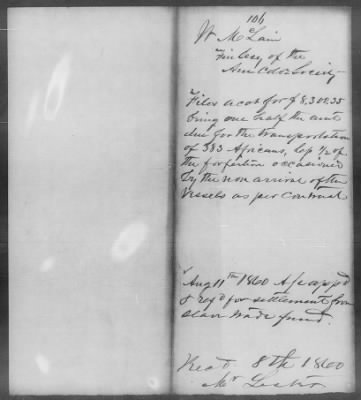 106
W McLain
Fin Secy of the
Am Colo. Society
Files acct for $8.308.35
being one half the amt
due for the transportation
of 383 Africans, less 1/2 of
the forfeiture occasioned
by the non arrival of the
Vessels as per contract
Aug 11th 1860 A/c appd
& reqd for settlement from
slave trade fund.
Recd 8th 1860
Mr